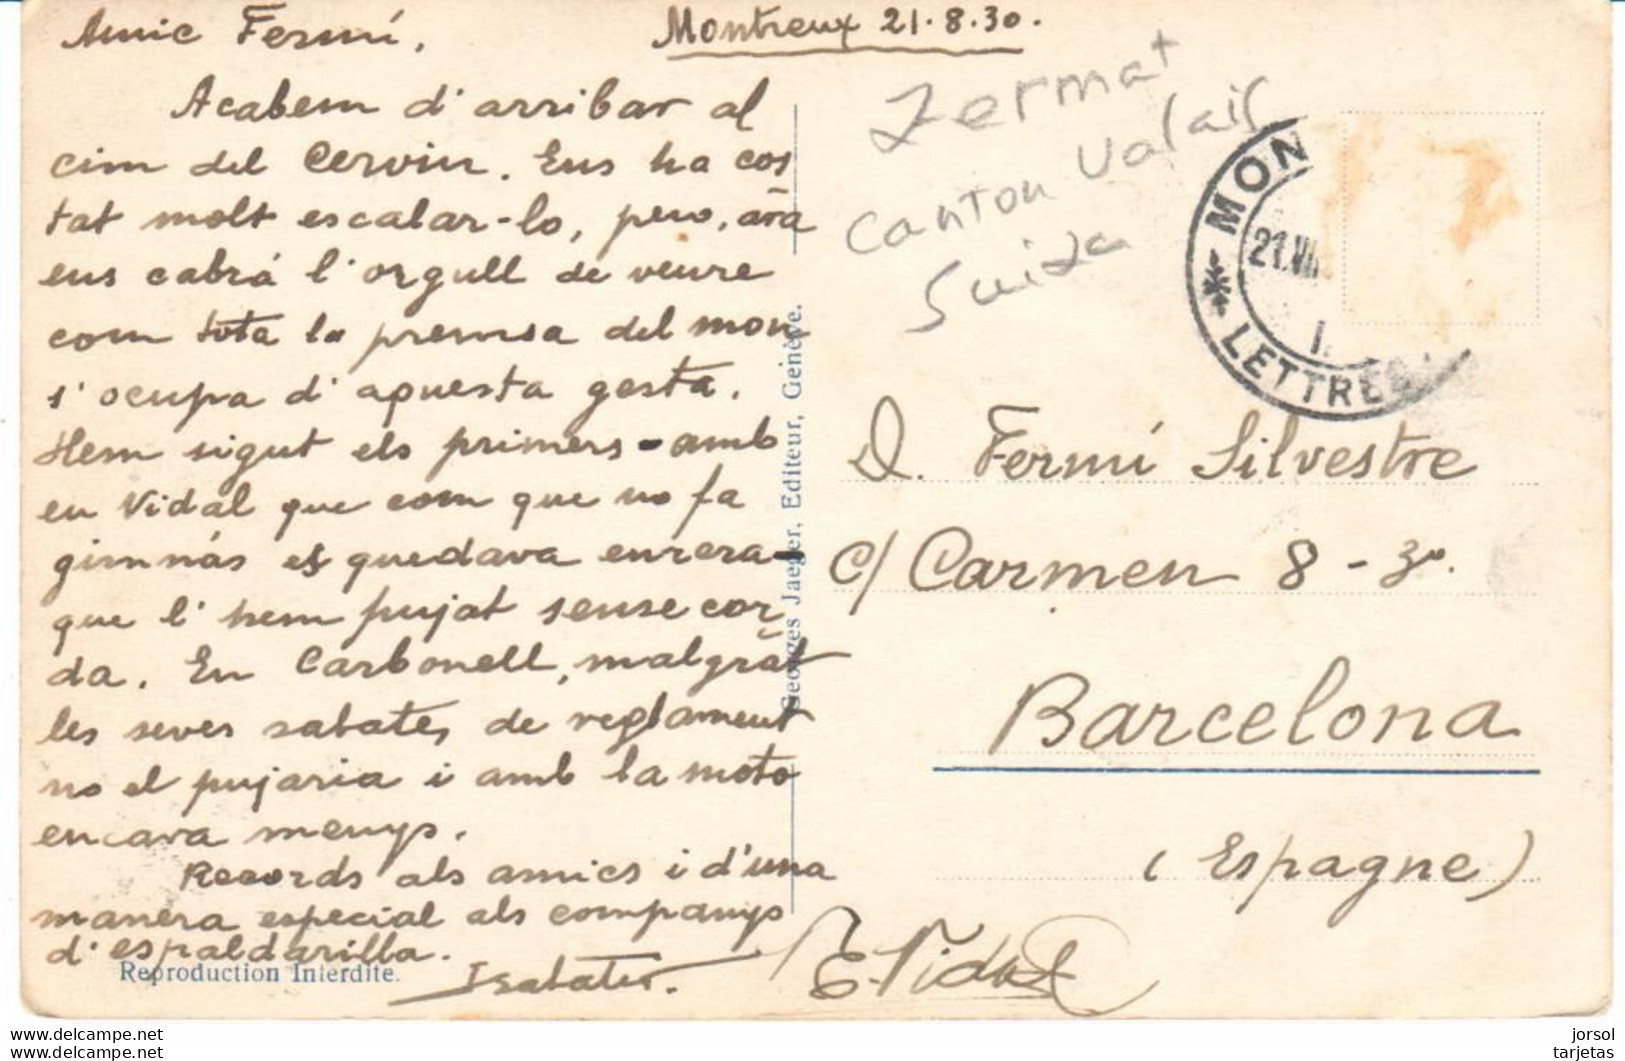 Amic Fermí,
Montreux 21.8.30.
Acabem d'arribar al
cim del Cervin. Ens ha cos
tat molt escalar-lo, pero, ara
ens cabrá l'orgull de veure
com tota la premsa del mon
s'ocupa d'aquesta gesta.
Hem sigut els primers - amb
en Vidal que com que no fa
gimnás es quedava enrera -
que l'hem pujat sense cor-
da. En Carbonell, malgrat
les seves sabates de reglament
no el pujaria i amb la moto
encara menys.
Records als amics i d'una
manera especial als companys
d'espaldarilla.
Reproduction Interdite.
E. Vidal
Georges Jaeger, Editeur, Genève.
Zermat
Canton Valais
Suiza
MON
21.VIII
LETTRES
D. Fermí Silvestre
c/ Carmen 8 - 3º.
Barcelona
(Espagne)
www.delcampe.net
www.delcampe.net
jorsol
tarjetas